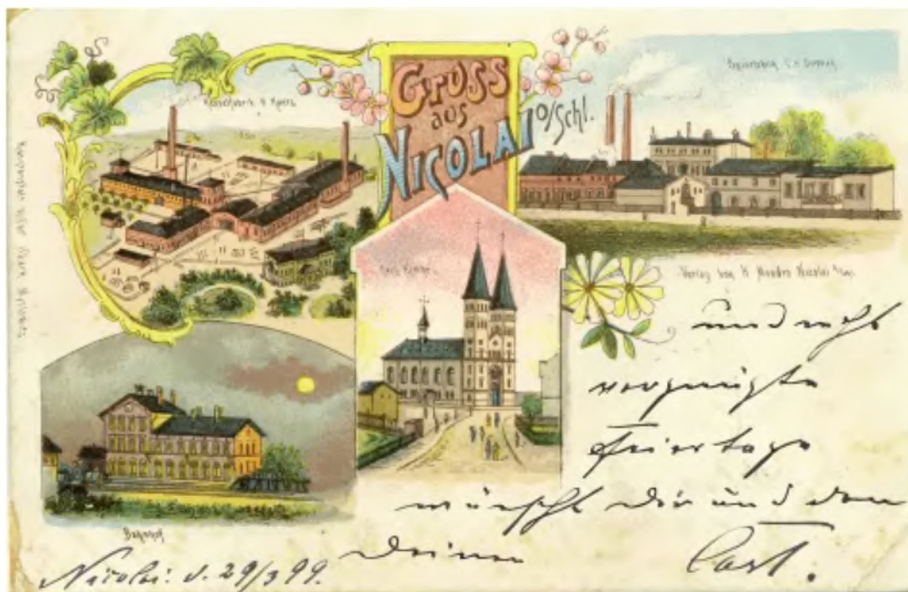 Gruss
aus
Nicolai O/Schl.
Kesselfabrik
Papierfabrik
Kath. Kirche
Verlag von Nicolai
Bahnhof
und recht
vergnügte
Feiertage
wünscht Dir und den
Deinen
Carl.
Nicolai: d. 29/3 99.